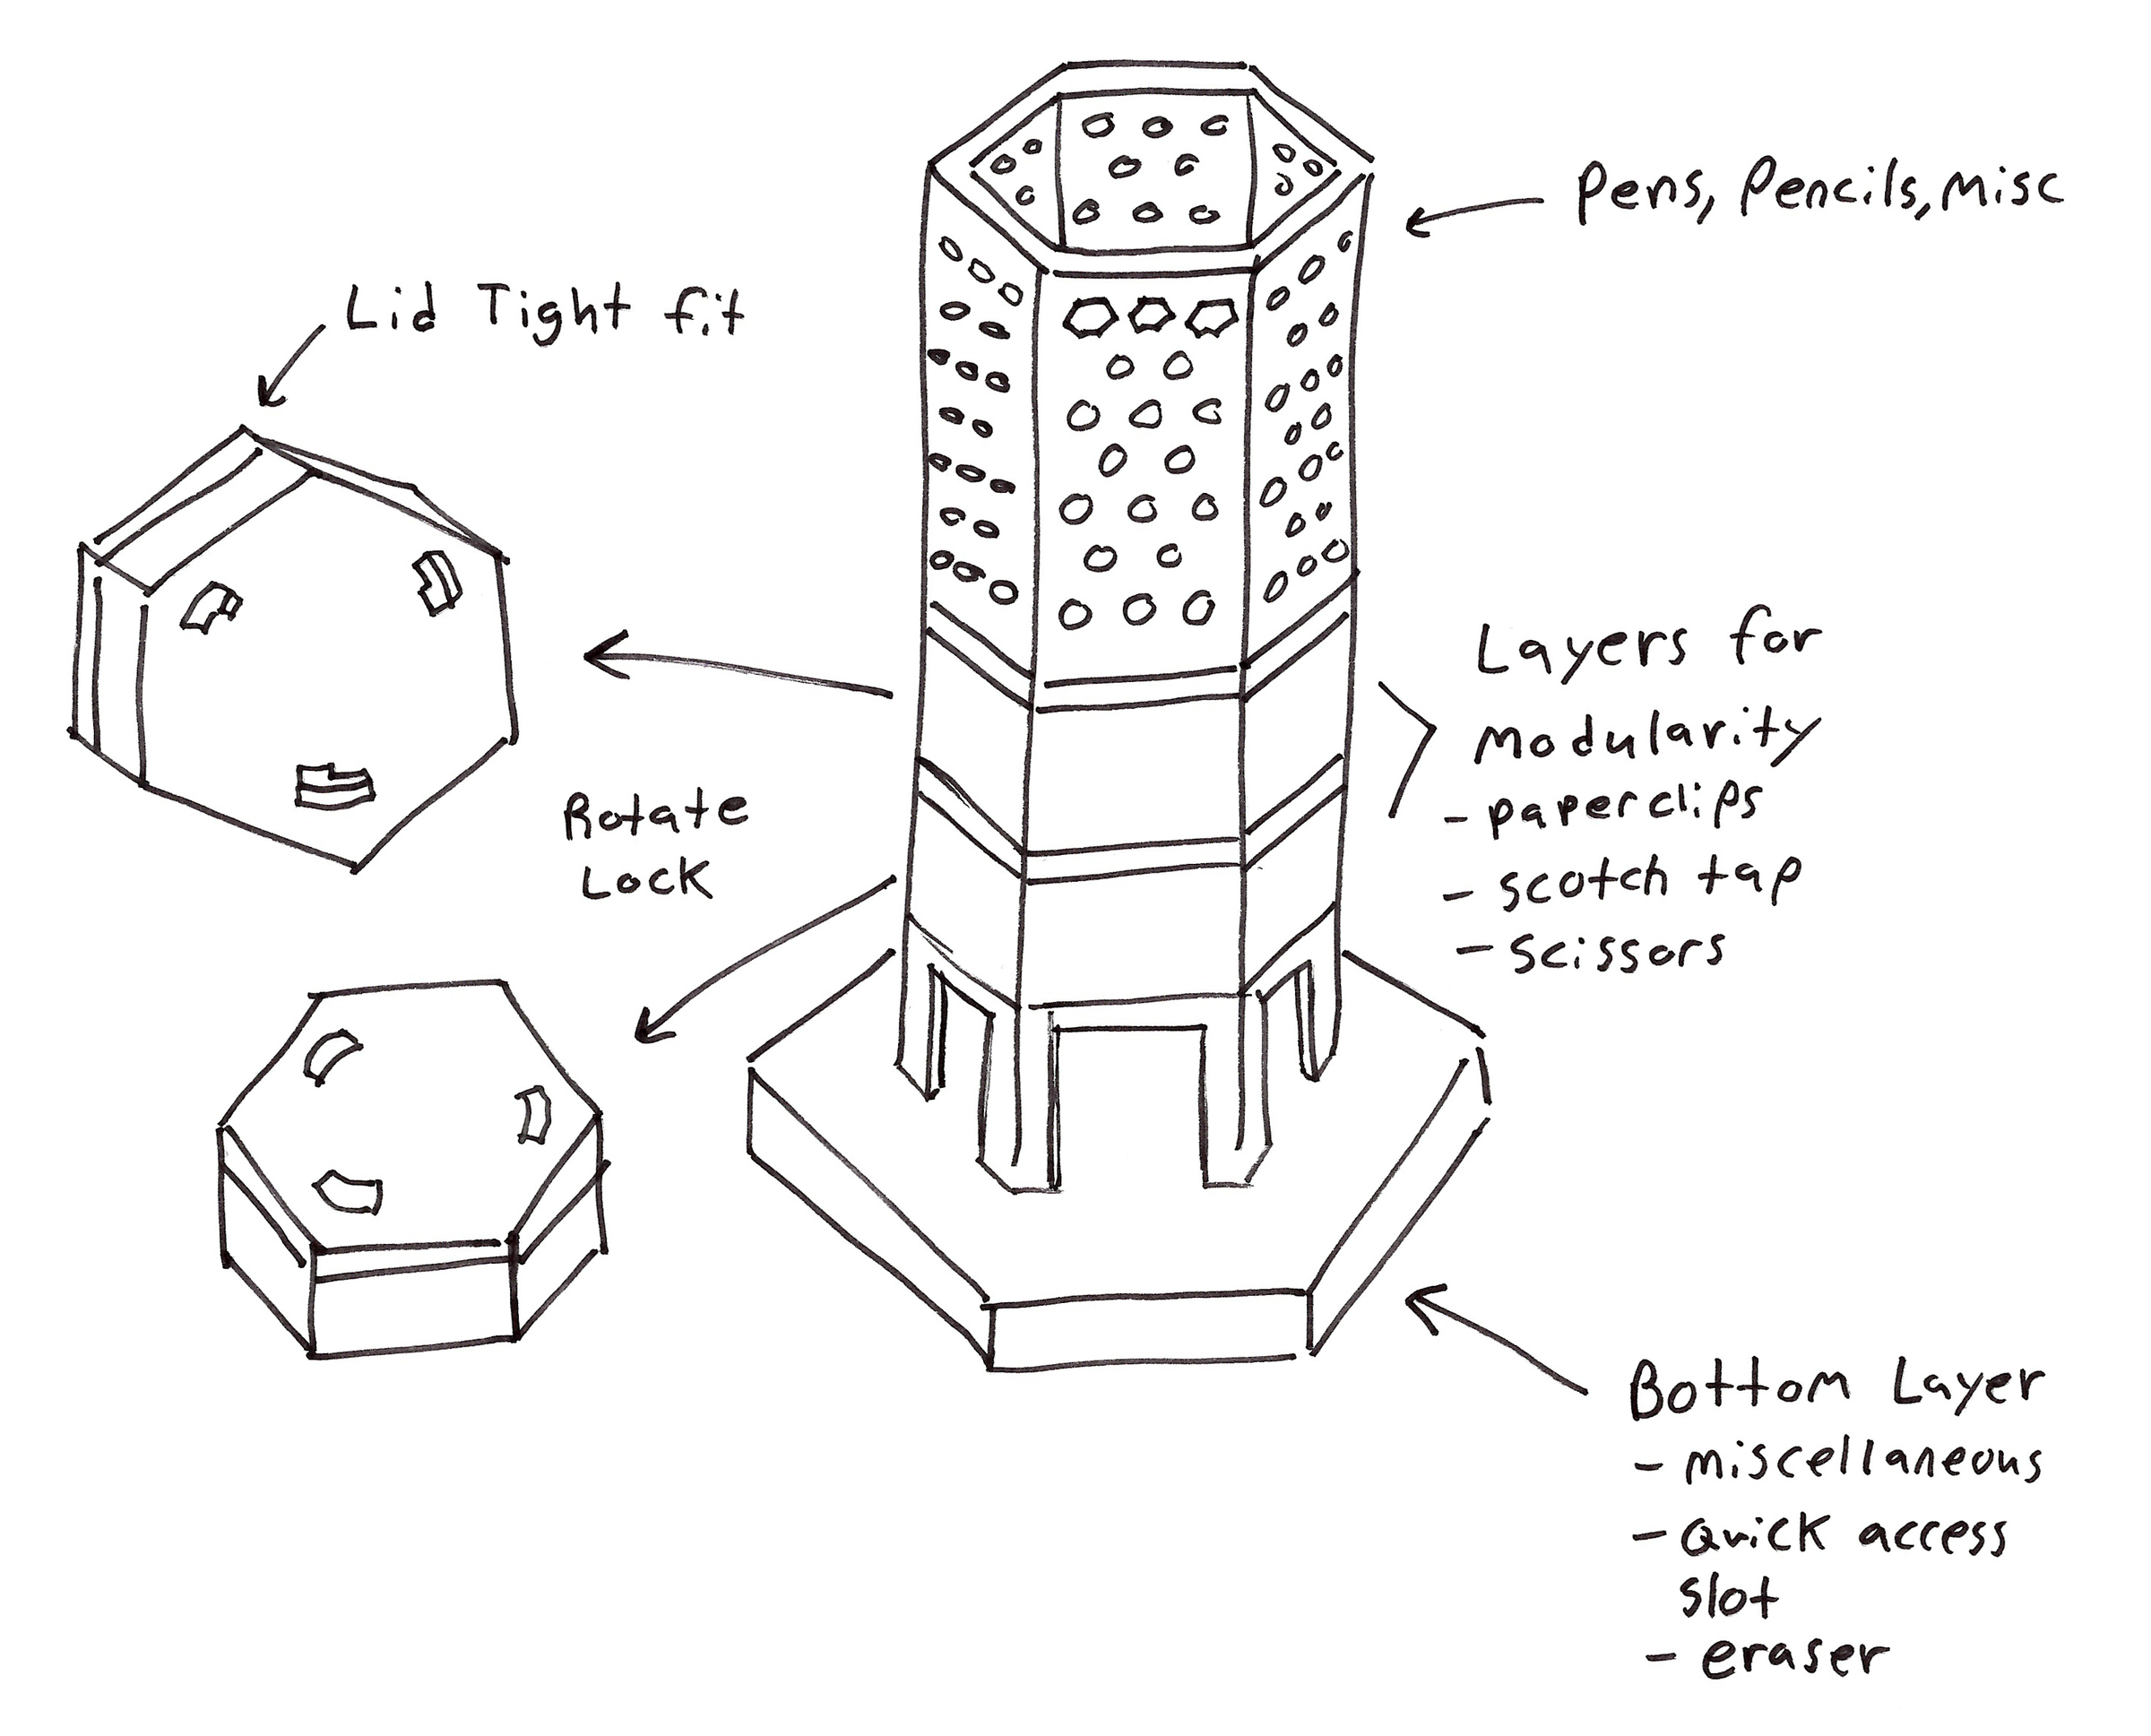 Pens, Pencils, Misc
Lid Tight fit
Layers for
Modularity
- paperclips
- scotch tap
- scissors
Rotate
Lock
Bottom Layer
- miscellaneous
- Quick access
slot
- eraser